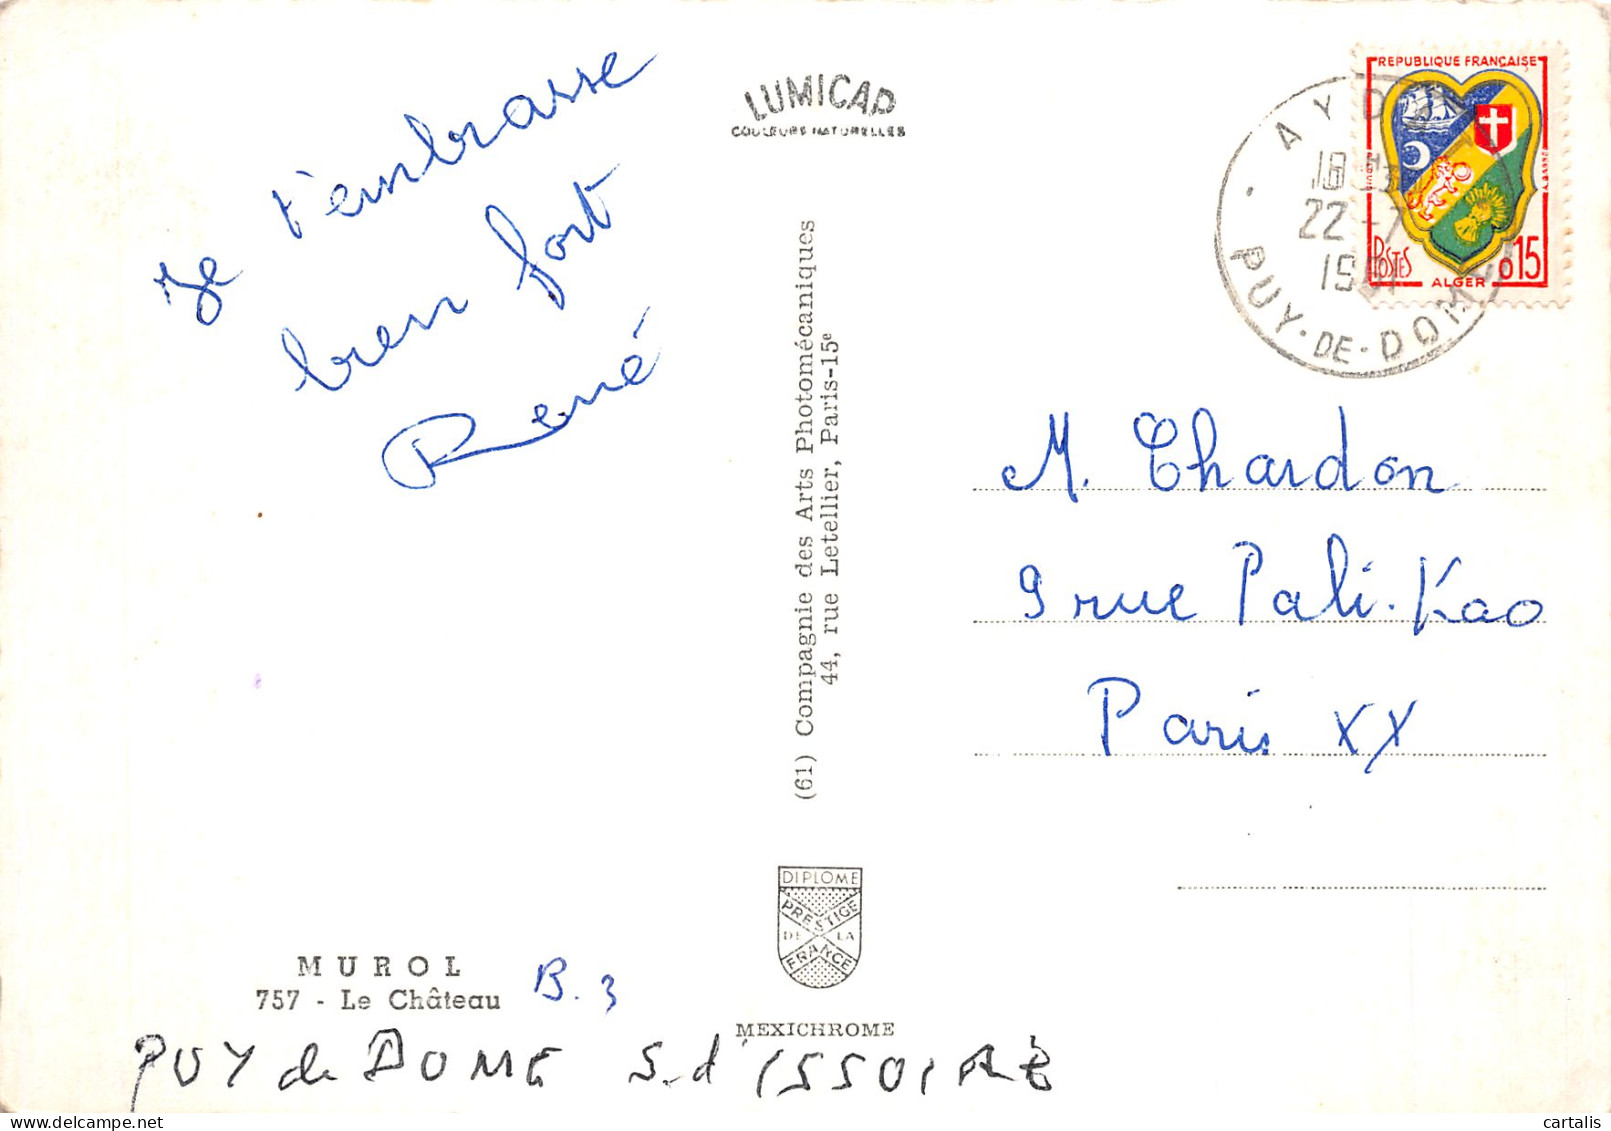 Je t'embrasse
bien fort
René
LUMICAP
COULEURS NATURELLES
(61) Compagnie des Arts Photomécaniques
44, rue Letellier, Paris-15e
REPUBLIQUE FRANÇAISE
POSTES
ALGER
0,15
18
22-7
PUY-DE-DOME
M. Chardon
9 rue Pali-Kao
Paris XX
DIPLOME
PRESTIGE
DE LA
FRANCE
MUROL
757 - Le Château
B.3
MEXICHROME
PUY de DOME S.d'ISSOIRE
cartalis